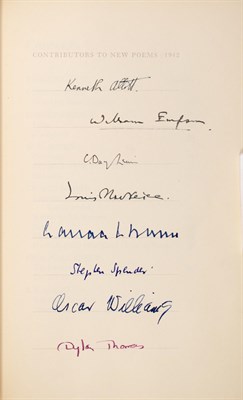 CONTRIBUTORS TO NEW POEMS
Kenneth Allott.
William Empson
C Day Lewis
Louis MacNeice.
Stephen Spender.
Oscar Williams
Dylan Thomas